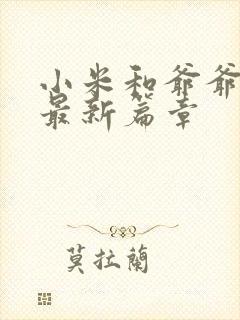 小米和爷爷
最新篇章
莫拉蘭